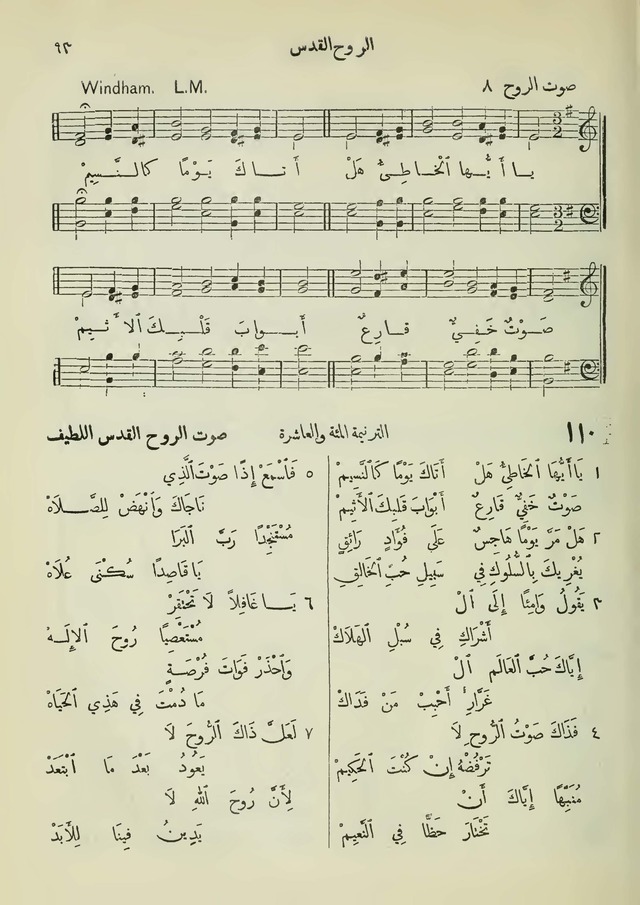 الروح القدس
٩٣
صوت الروح ٨
Windham. L.M.
يا أَيُّها ٱلْخَاطِئُ هَلْ أَتاكَ يَوْمًا كالنَّسِيمْ
صَوْتٌ خَفِيٌّ قارِعٌ أَبوابَ قَلْبِكَ ٱلأَثيمْ
١١٠ الترنيمة المئة والعاشرة صوت الروح القدس اللطيف
١ يَا أَيُّهَا ٱلْخَاطِئُ هَلْ أَتَاكَ يَوْمًا كَالنَّسِيمْ
صَوْتٌ خَفِيٌّ قَارِعٌ أَبْوَابَ قَلبِكَ ٱلأَثِيمْ
٢ هَلْ مَرَّ يَوْمًا هَاجِسٌ عَلَى فُؤَادٍ رَائِقٍ
يُغْرِيكَ بِالسُّلُوكِ فِي سَبِيلِ حُبِّ ٱلْخَالِقِ
٣ يَقُولُ وَامِئًا إِلَى ٱلْ
أَشْرَاكِ فِي سُبْلِ ٱلْهَلَاكْ
إِيَّاكَ حُبَّ ٱلْعَالَمِ ٱلْ
غَرَّارِ أَحْبِبْ مَنْ فَدَاكْ
٤ فَذَاكَ صَوْتُ ٱلرُّوحِ لَا
تَرْفُضْهُ إِنْ كُنْتَ ٱلْحَكِيمْ
مُنَبِّهًا إِيَّاكَ أَنْ
تَخْتَارَ حَظًّا فِي ٱلنَّعِيمْ
٥ فَٱسْمَعْ إِذًا صَوْتَ ٱلَّذِي
نَاجَاكَ وَٱنْهَضْ لِلصَّلَاهْ
مُسْتَنْجِدًا رَبَّ ٱلْبَرَا
يَا قَاصِدًا سُكْنَى عُلَاهْ
٦ يَا غَافِلًا لَا تَحْتَقِرْ
مُسْتَعْصِيًا رُوحَ ٱلإِلٰهْ
وَٱحْذَرْ فَوَاتَ فُرْصَةٍ
مَا دُمْتَ فِي هَذِي ٱلْحَيَاهْ
٧ لَعَلَّ ذَاكَ ٱلرُّوحَ لَا
يَعُودُ بَعْدَ مَا ٱبْتَعَدْ
لِأَنَّ رُوحَ ٱللهِ لَا
يَدِينُ فِينَا لِلأَبَدْ